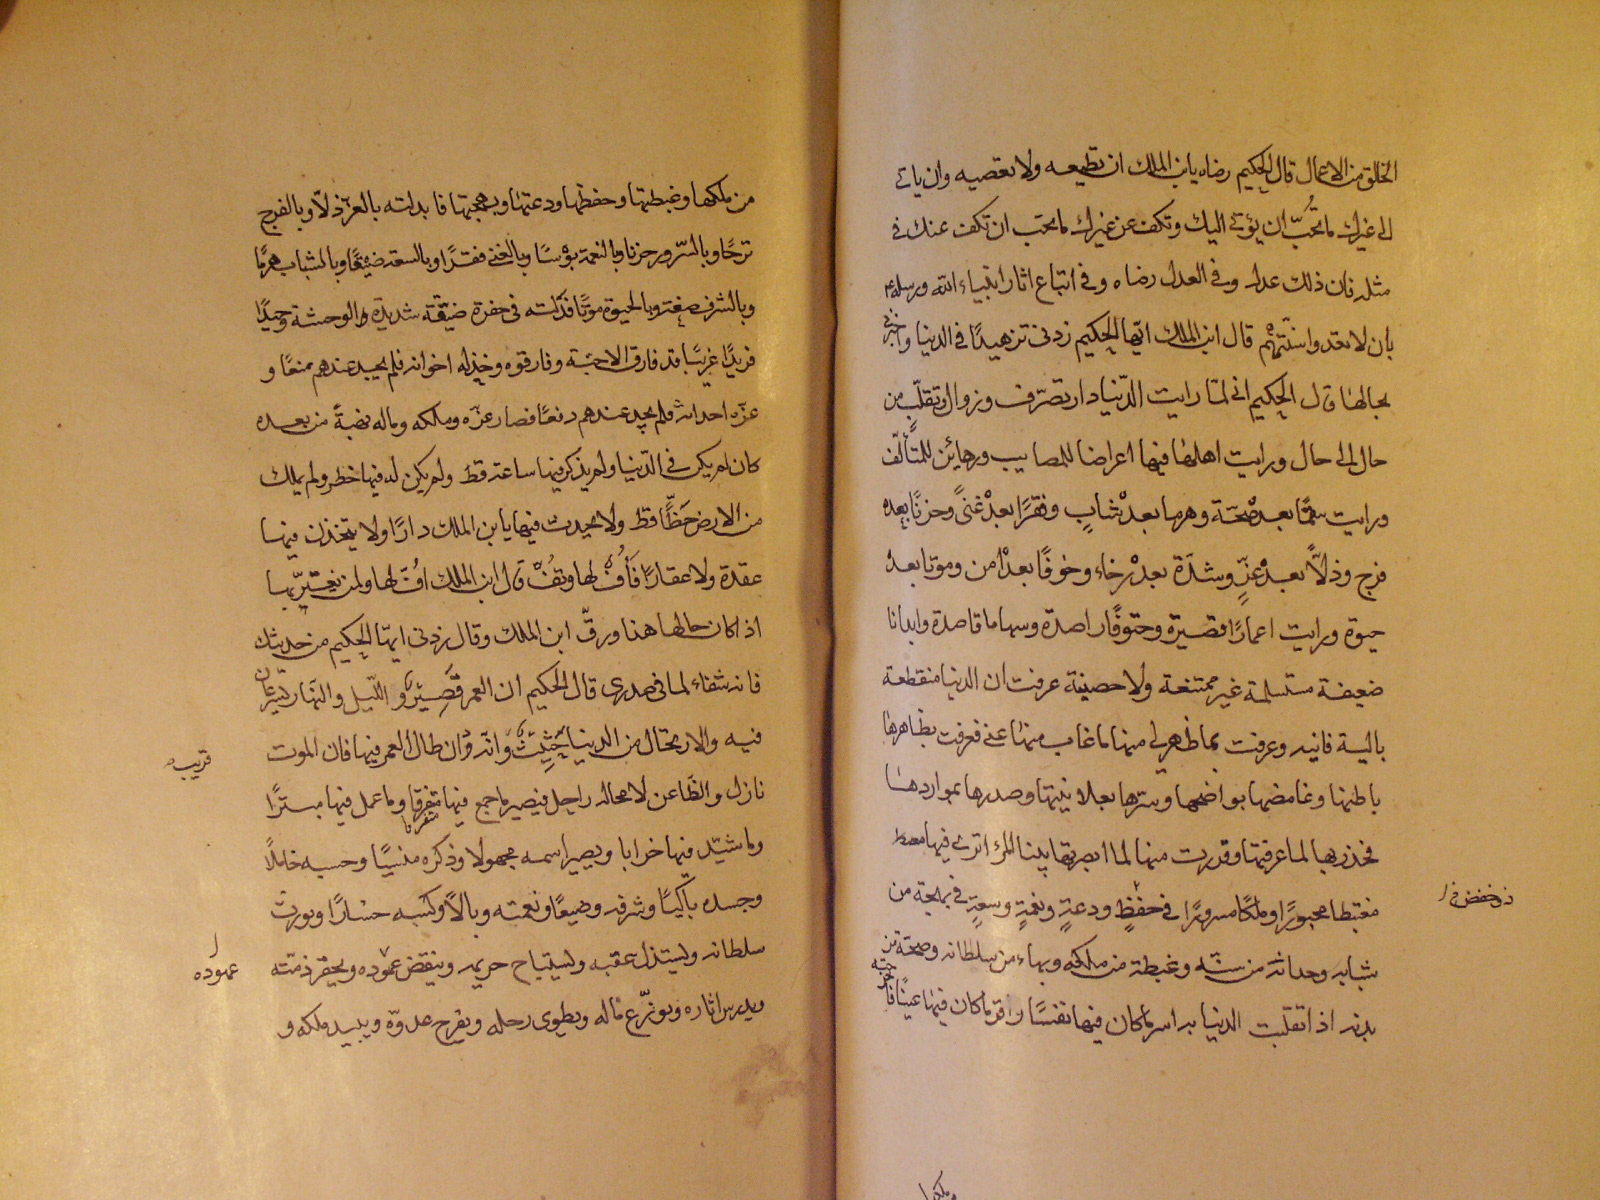 الخالق من الاعمال قال الحكيم رضاه يابن الملك ان تطيعه ولا تعصيه وان ياتى
الى غيرك ما تحبّ ان يؤتى اليك وتكف عن غيرك ما تحب ان تكف عنك فى
مثله فان ذلك عدل وفى العدل رضاه وفى اتباع اثار انبياء الله ورسله
بان لا تعدوا سنّتهم قال ابن الملك ايّها الحكيم زدنى تزهيدًا فى الدنيا واخبرنى
بحالها قال الحكيم انى لمّا رايت الدّنيا دار تصرّف وزوال وتقلّب من
حال الى حال ورايت اهلها فيها اعراضا للمصايب ورهاين للمتالّف
ورايت سقمًا بعد صحّة وهرما بعد شباب وفقرًا بعد غنىً وحزنًا بعد
فرح وذلّاً بعد عزٍّ وشدّة بعد رخاء وخوفًا بعد امن وموتا بعد
حيوة ورايت اعمارًا قصيرة وحتوفًا راصدة وسهاما قاصدة وابدانا
ضعيفة مستسلمة غير ممتنعة ولا حصينة عرفت ان الدنيا منقطعة
بالية فانيه وعرفت بما ظهر لى منها ما غاب منها عنى فعرفت بظاهرها
باطنها وغامضها بواضحها وسرّها بعلانيتها وصدرها بمواردها
فحذرتها لما عرفتها وفررت منها لما ابصرتها بينا المرء ترى فيها
مغتبطا محبورًا وملكًا مسرورًا فى خفضٍ ودعةٍ ونعمةٍ وسعةٍ فى بهجة من
شبابه وحداثة من سنّه وغبطة من ملكه وبهاء من سلطانه وصحّة من
بدنه اذا تقلبت الدنيا به اسرّ ما كان فيها نفسًا واقرّ ما كان فيها عينًا فاخرجته
ذ خفض
من ملكها وغبطتها وخفضها ودعتها وبهجتها فابدلته بالعزّ ذلاّ وبالفرح
ترحًا وبالسّرور حزنا وبالنعمة بؤسًا وبالغنى فقرًا وبالسعة ضيقًا وبالشباب هرمًا
وبالشرف ضعة وبالحيوة موتًا فدلّته فى حفرة ضيّقة شديدة الوحشة وحيدًا
فريدًا غريبًا قد فارق الاحبّة وفارقوه وخذله اخوانه فلم يجد عندهم منعًا و
عزّه احداثه فلم يجد عندهم دفعًا فصار عزّه وملكه وماله نهبةً من بعده
كان لم يكن فى الدّنيا ولم يذكر فيها ساعة قط ولم يكن له فيها خطر ولم يملك
من الارض حظًّا قط ولا تحدث فيها يا بن الملك دارًا ولا يتخذن فيها
عقدة ولا عقارًا فافّ لها وتفّ قال ابن الملك افّ لها ولمن يغترّ بها
اذا كان حالها هذا ورقّ ابن الملك وقال زدنى ايّها الحكيم من حديثك
فانه شفاء لما فى صدرى قال الحكيم ان العمر قصير والليل والنّهار يسرعان
فيه والارتحال من الدنيا حثيث وانّه وان طال العمر فيها فان الموت
قريب
نازل والظّاعن لا محالة راحل فيصير ما جمع فيها متفرقا وما عمل فيها متبرًا
متفرقا
وما شيّد فيها خرابا ويصير اسمه مجهولا وذكره منسيًا وحسبه خاملًا
وجسده باليًا وشرفه وضيعًا ونعمته وبالاً وكسبه خسارًا ويورث
سلطانه ويستذل عقبه ويستباح حريمه وينقض عهوده ويحقر ذمّته
عموده
ويدرس اثاره ويوزّع ماله ويطوى رحله ويفرح عدوّه ويبيد ملكه و